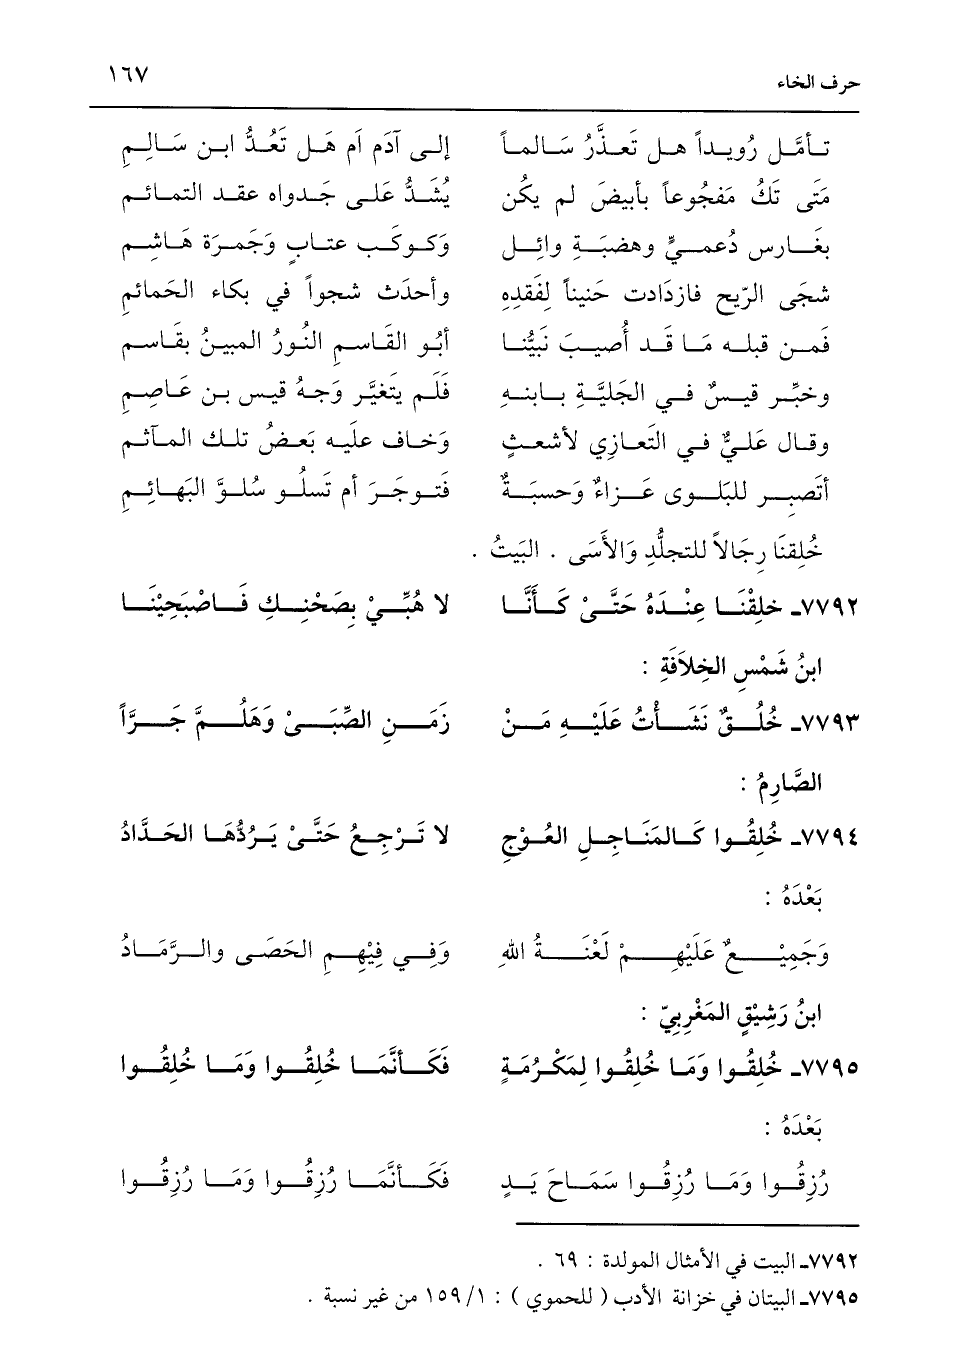 حرف الخاء ١٦٧
تأمَّل رُويداً هل تعذَّرُ سَالماً إلى آدَم أم هَل تَعُدُّ ابن سَالِمِ
مَتَى تَكُ مَفجُوعاً بأبيضَ لم يكُن يُشَدُّ عَلى جَدواه عقد التمائم
بغَارس دُعميٍّ وهضبَةِ وائل وَكوكَب عتابٍ وَجَمرَة هَاشِم
شجَى الرّيح فازدَادت حَنيناً لِفَقدِهِ وأحدَث شجواً في بكاء الحَمائمِ
فمن قبله مَا قَد أُصيبَ نَبيُّنا أبُو القَاسِم النُورُ المبينُ بقَاسم
وخبِّر قيسٌ في الجَليَّةِ بابنهِ فَلَم يتَغيَّر وَجهُ قيس بن عَاصِمِ
وقال عَليٌّ في التَعازِي لأشعثٍ وَخاف عليه بَعضُ تلك المآثم
أتَصبِر للبَلوى عَزاءً وَحِسبَةً فَتوجَرَ أم تَسلُو سُلوَّ البَهائِمِ
خُلِقنَا رجَالاً للتجلُّدِ وَالأَسَى . البَيتُ .
٧٧٩٢ـ خلِقْنَا عِنْدَهُ حَتَّىْ كَأَنَّا لا هُبِّيْ بِصَحْنِكِ فَاصْبَحِيْنَا
ابنُ شَمْسِ الخِلاَفَةِ :
٧٧٩٣ـ خُلُقٌ نَشَأتُ عَلَيْهِ مَنْ زَمَنِ الصِّبَىْ وَهَلُمَّ جَرَّاً
الصَّارِمُ :
٧٧٩٤ـ خُلِقُوا كَالمَنَاجِلِ العُوْجِ لا تَرْجِعُ حَتَّىْ يَرُدُّهَا الحَدَّادُ
بَعْدَهُ :
وَجَمِيْعٌ عَلَيْهِمْ لَعْنَةُ اللهِ وَفِي فِيْهِمِ الحَصَى والرَّمَادُ
ابنُ رَشِيْقٍ المَغْرِبِيّ :
٧٧٩٥ـ خُلِقُوا وَمَا خُلِقُوا لِمَكْرُمَةٍ فَكَأنَّمَا خُلِقُوا وَمَا خُلِقُوا
بَعْدَهُ :
رُزِقُوا وَمَا رُزِقُوا سَمَاحَ يَدٍ فَكَأنَّمَا رُزِقُوا وَمَا رُزِقُوا
٧٧٩٢ـ البيت في الأمثال المولدة : ٦٩ .
٧٧٩٥ـ البيتان في خزانة الأدب ( للحموي ) : ١/ ١٥٩ من غير نسبة .